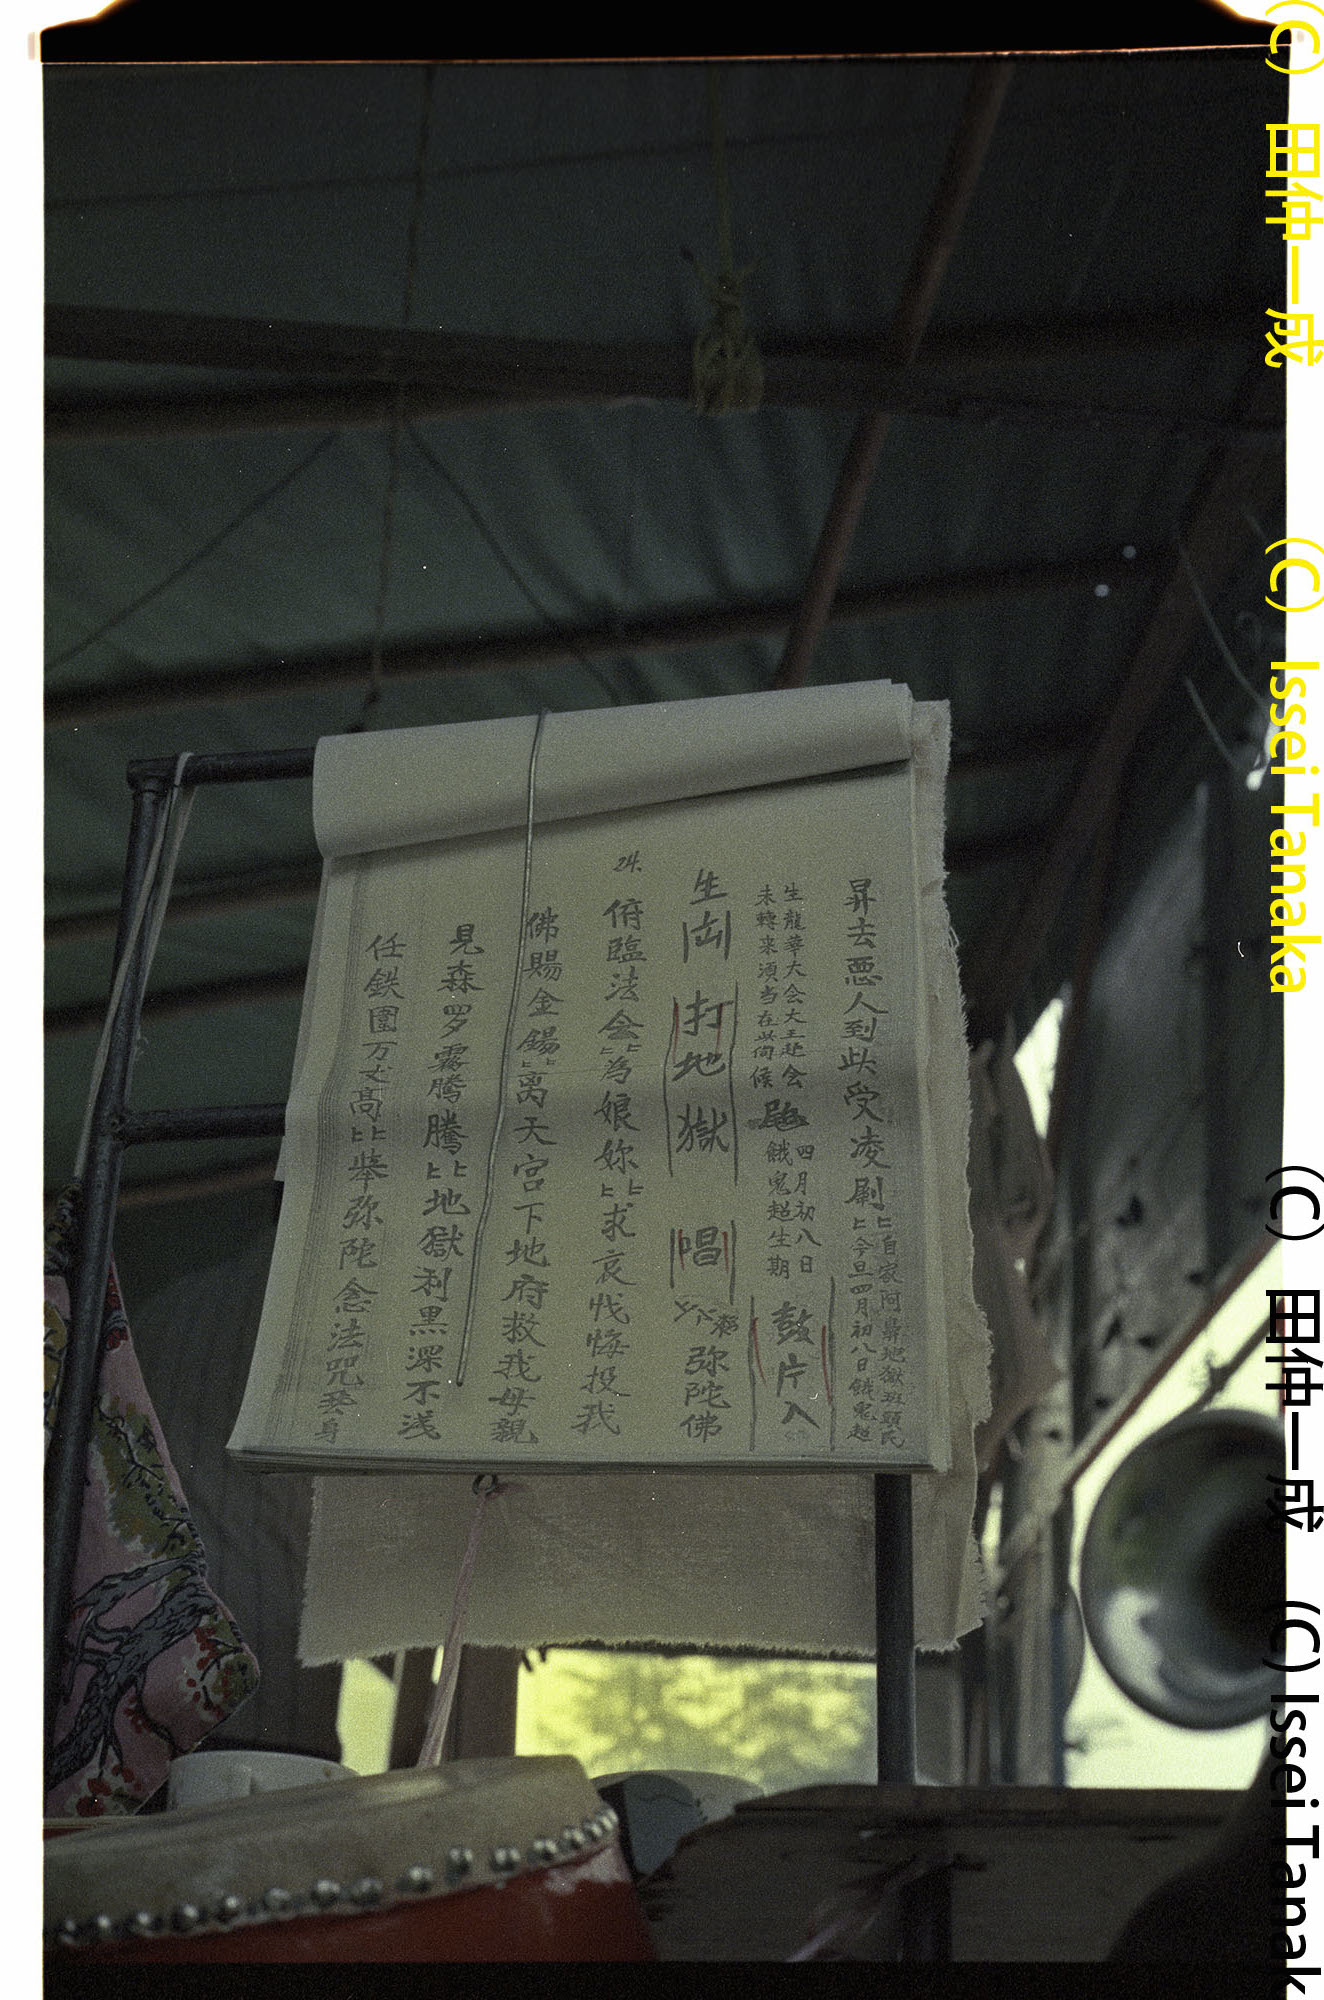 昇去惡人到此受凌剮ヒヒ自家阿鼻地獄班頭氏
今旦四月初八日餓鬼超
生龍華大会大王赴会
未轉来須当在此伺候
四月初八日
餓鬼超生期
鼓片入
生出 打地獄 唱 弥陀佛
24.
俯臨法会ヒヒ為娘妳ヒヒ求哀忏悔投我
佛賜金錫ヒヒ离天宮下地府救我母親
見森罗霧騰騰ヒヒ地獄利黑深不浅
任鉄圍万丈高ヒヒ举弥陀念法咒
身
(C) 田仲一成
(C) Issei Tanaka
(C) 田仲一成
(C) Issei Tanak